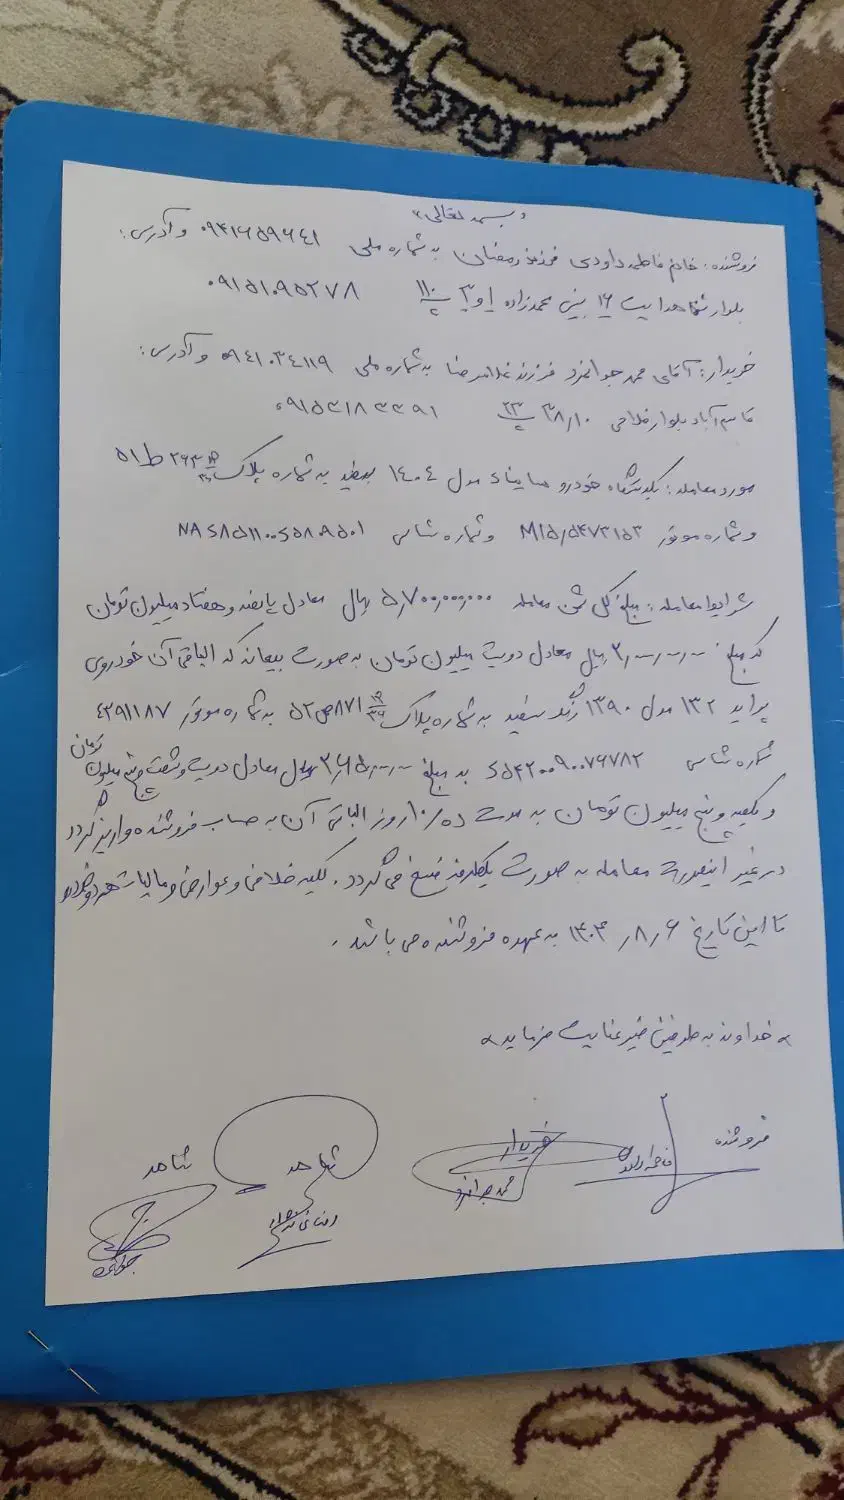 «بسمه تعالی»
فروشنده: خانم فاطمه داودی فرزند رمضان به شماره ملی ۰۹۴۱۶۵۹۶۴۱ و آدرس:
بلوار شاهد ایت ۱۶ بین محمدزاده ۱ و ۳ پ ۱۱۰ ۰۹۱۵۱۰۹۵۲۷۸
خریدار: آقای محمد جوانمرد فرزند غلامرضا به شماره ملی ۰۹۴۱۰۳۴۱۱۹ و آدرس:
قاسم آباد بلوار فلاحی ۳۸/۱۰ پ ۲۳ ۰۹۱۵۳۱۸۳۳۹۱
مورد معامله: یکدستگاه خودرو ساینا مدل ۱۴۰۴ سفید به شماره پلاک ۲۶۳ ط ۵۱
و شماره موتور M15/5473153 و شماره شاسی NAS851100S5889501
شرایط معامله: مبلغ کل ثمن معامله ۵,۷۰۰,۰۰۰,۰۰۰ ریال معادل پانصد و هفتاد میلیون تومان
که مبلغ ۲,۰۰۰,۰۰۰,۰۰۰ ریال معادل دویست میلیون تومان به صورت بیعانه که الباقی آن خودروی
پراید ۱۳۲ مدل ۱۳۹۰ رنگ سفید به شماره پلاک ۸۷۱ ص ۵۲ به شماره موتور ۴۳۹۱۱۸۷
شماره شاسی S5420090076782 به مبلغ ۲,۶۵۰,۰۰۰,۰۰۰ ریال معادل دویست و شصت و پنج میلیون تومان
و یکصد و پنج میلیون تومان به مدت ده/۱۰ روز الباقی آن به حساب فروشنده واریز گردد
در غیر اینصورت معامله به صورت یکطرفه فسخ می گردد. کلیه خلافی و عوارض و مالیات هر دو خودرو
تا این تاریخ ۱۴۰۴/۸/۶ به عهده فروشنده می باشد.
«خداوند به طرفین خیر عنایت فرماید»
فروشنده خریدار شاهد شاهد
فاطمه داودی محمد جوانمرد